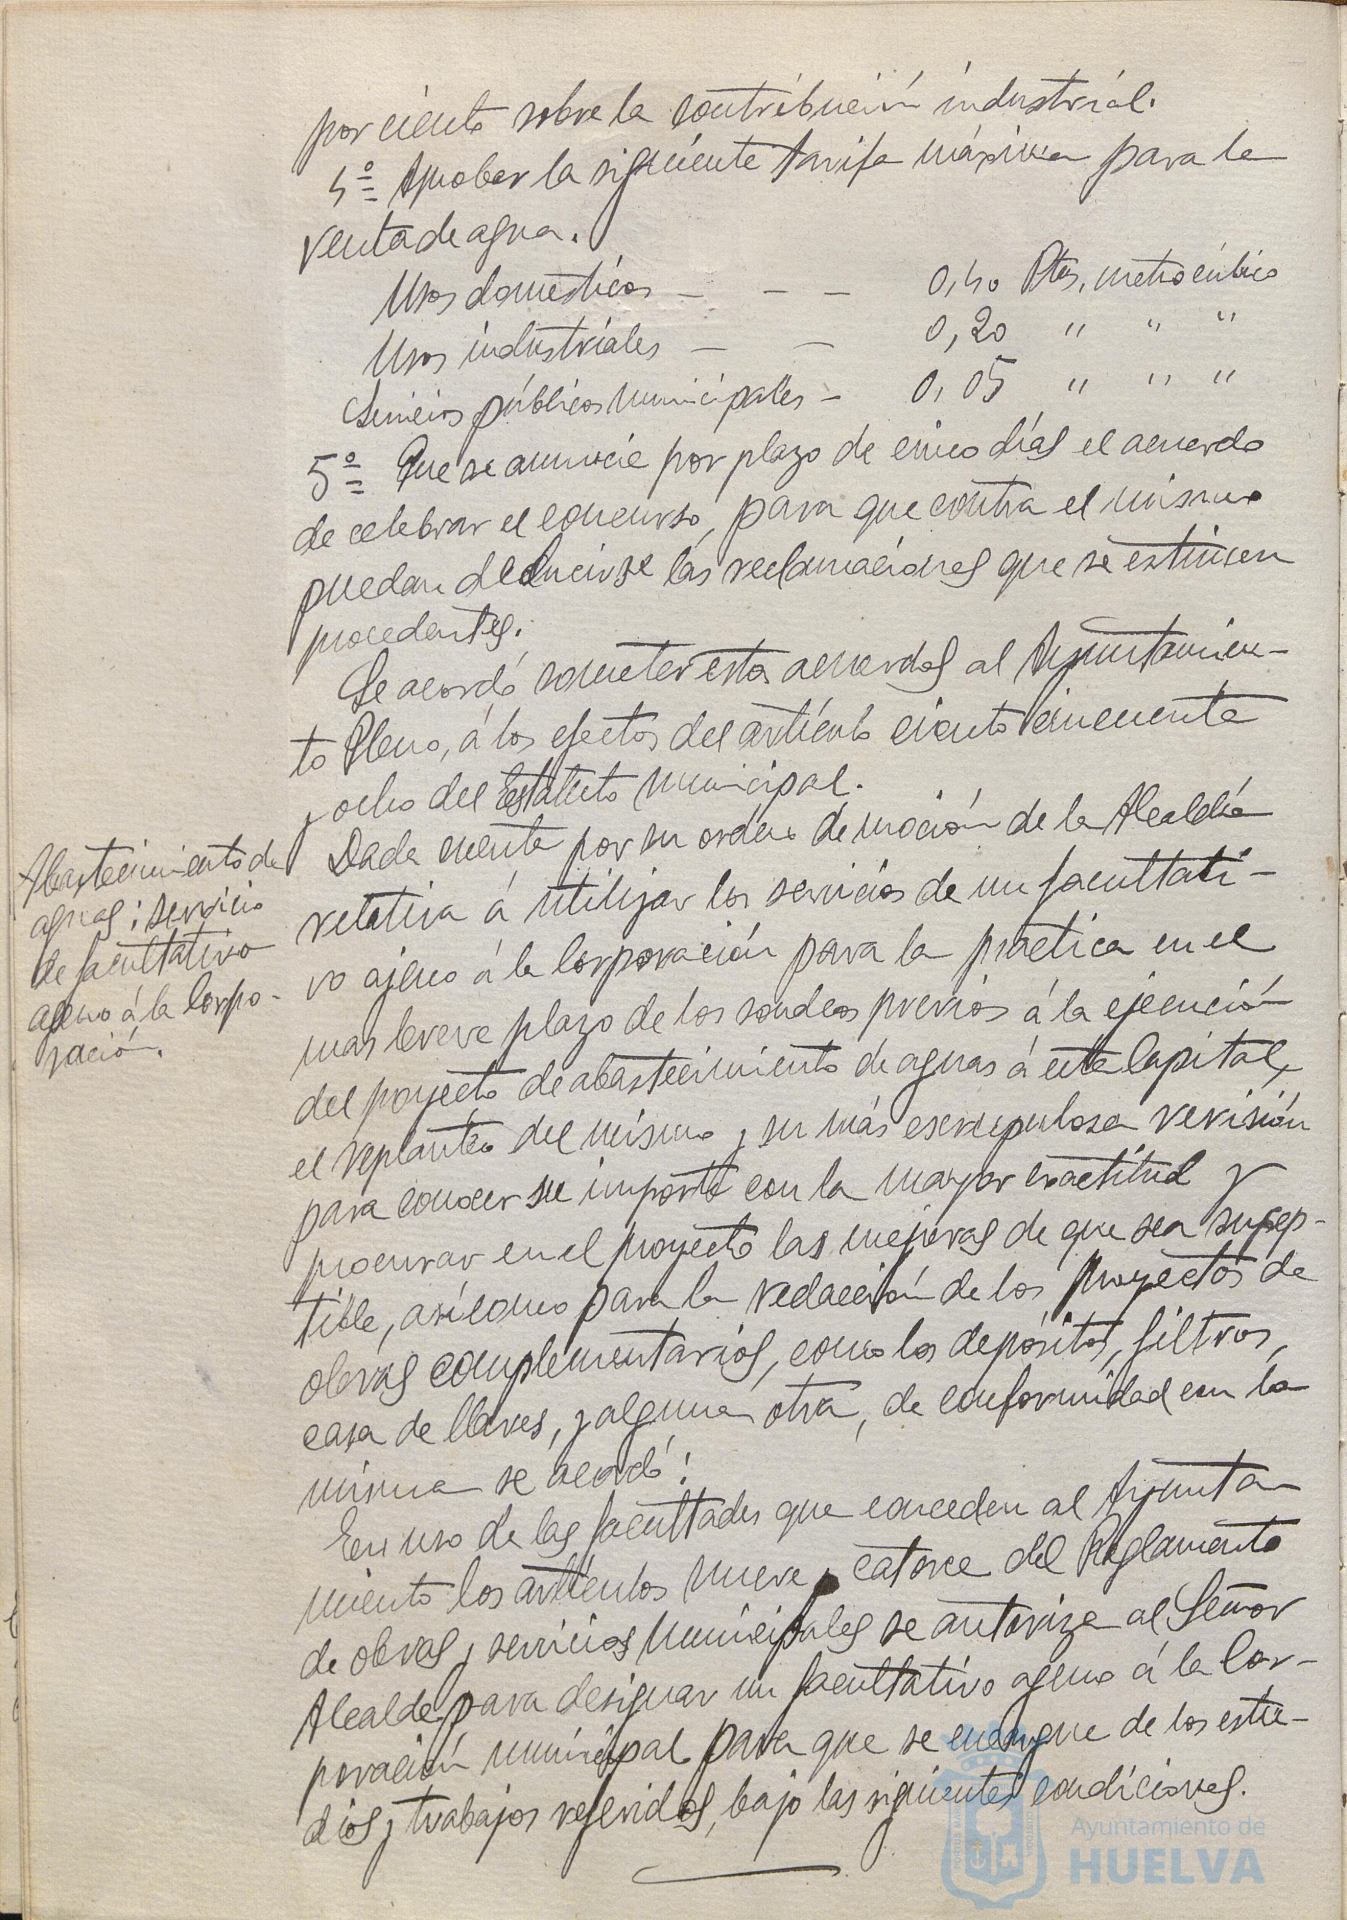 por ciento sobre la contribución industrial.
4º Aprobar la siguiente tarifa máxima para la
venta de agua.
Usos domésticos — — — 0,40 Ptas, metro cúbico
Usos industriales — — 0,20 " " "
Servicios públicos municipales — 0,05 " " "
5º Que se anuncie por plazo de cinco días el acuerdo
de celebrar el concurso, para que contra el mismo
puedan deducirse las reclamaciones que se estimen
procedentes.
Se acordó someter estos acuerdos al Ayuntamien-
to Pleno, á los efectos del artículo ciento cincuenta
y ocho del Estatuto Municipal.
Abastecimiento de
aguas; servicio
de facultativo
ageno á la Corpo-
ración.
Dada cuenta por su orden de moción de la Alcaldía
relativa á utilizar los servicios de un facultati-
vo ajeno á la Corporación para la practica en el
mas breve plazo de los sondeos previos á la ejecución
del proyecto de abastecimiento de aguas á esta Capital,
el replanteo del mismo y su más escrupulosa revisión
para conocer su importe con la mayor exactitud y
procurar en el proyecto las mejoras de que sea suscep-
tible, así como para la redacción de los proyectos de
obras complementarios, como los depósitos, filtros,
casa de llaves, y alguna otra, de conformidad con la
misma se acordó:
En uso de las facultades que conceden al Ayunta
miento los artículos nueve y catorce del Reglamento
de obras y servicios Municipales se autoriza al Señor
Alcalde para designar un facultativo ageno á la Cor-
poración municipal para que se encargue de los estu-
dios y trabajos referidos, bajo las siguientes condiciones.
Ayuntamiento de
HUELVA